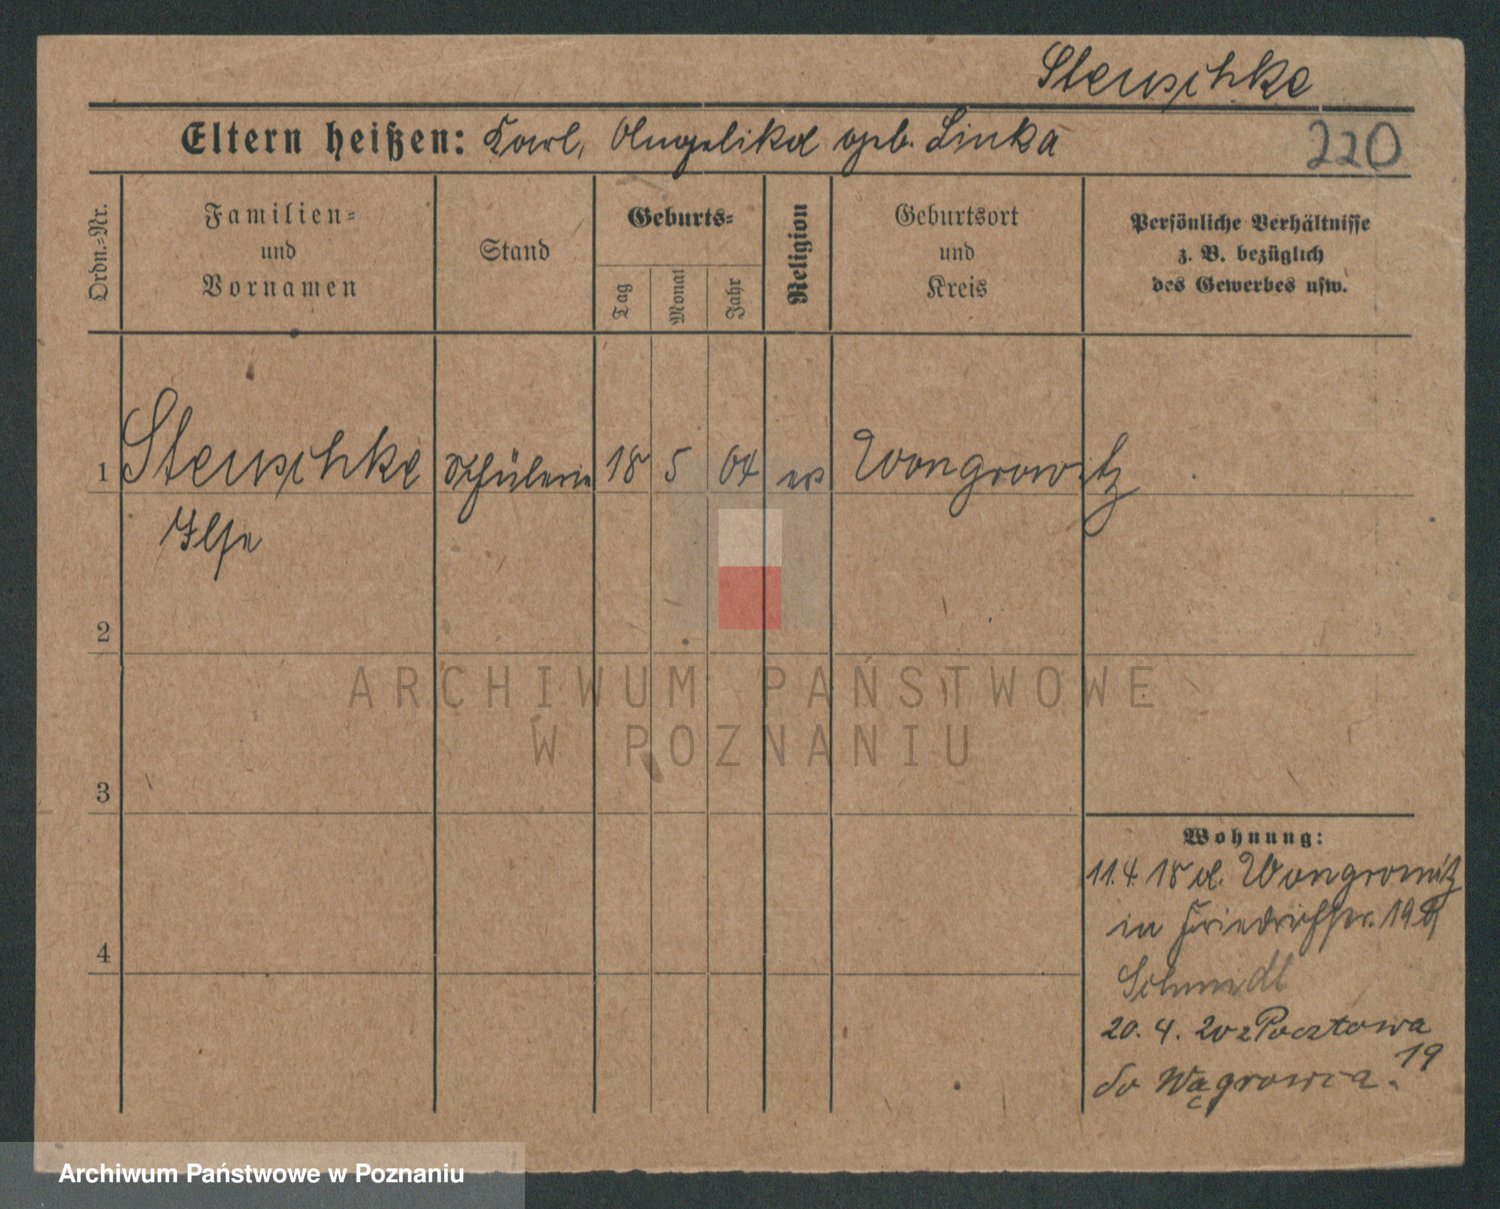 Steuschke
Eltern heißen: Karl, Angelika geb. Linka
220
Ordn.-Nr.
Familien-
und
Vornamen
Stand
Geburts-
Tag
Monat
Jahr
Religion
Geburtsort
und
Kreis
Persönliche Verhältnisse
z. B. bezüglich
des Gewerbes usw.
1 Steuschke Schülerin 18 5 04 ev Wongrowitz
Ilse
2
ARCHIWUM PAŃSTWOWE
W POZNANIU
3
Wohnung:
11.4.18 v. Wongrowitz
in Friedrichstr. 19
4
Schmidt
20. 4. 20 z Pocztowa
19
do Wągrowca.
Archiwum Państwowe w Poznaniu